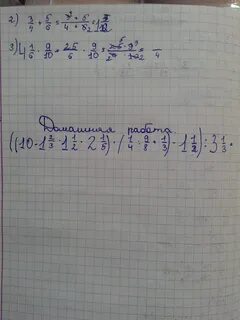 2) 3/4 * 5/6 = 3 * 5 / 4 * 2 =
3) 4 1/6 · 9/10 = 25/6 · 9/10 =
Домашняя работа
((10 · 1 2/3 · 1 1/2 · 2 1/5) · (1/4 : 9/8 + 1/3) - 1 1/2) : 3 1/3 ·